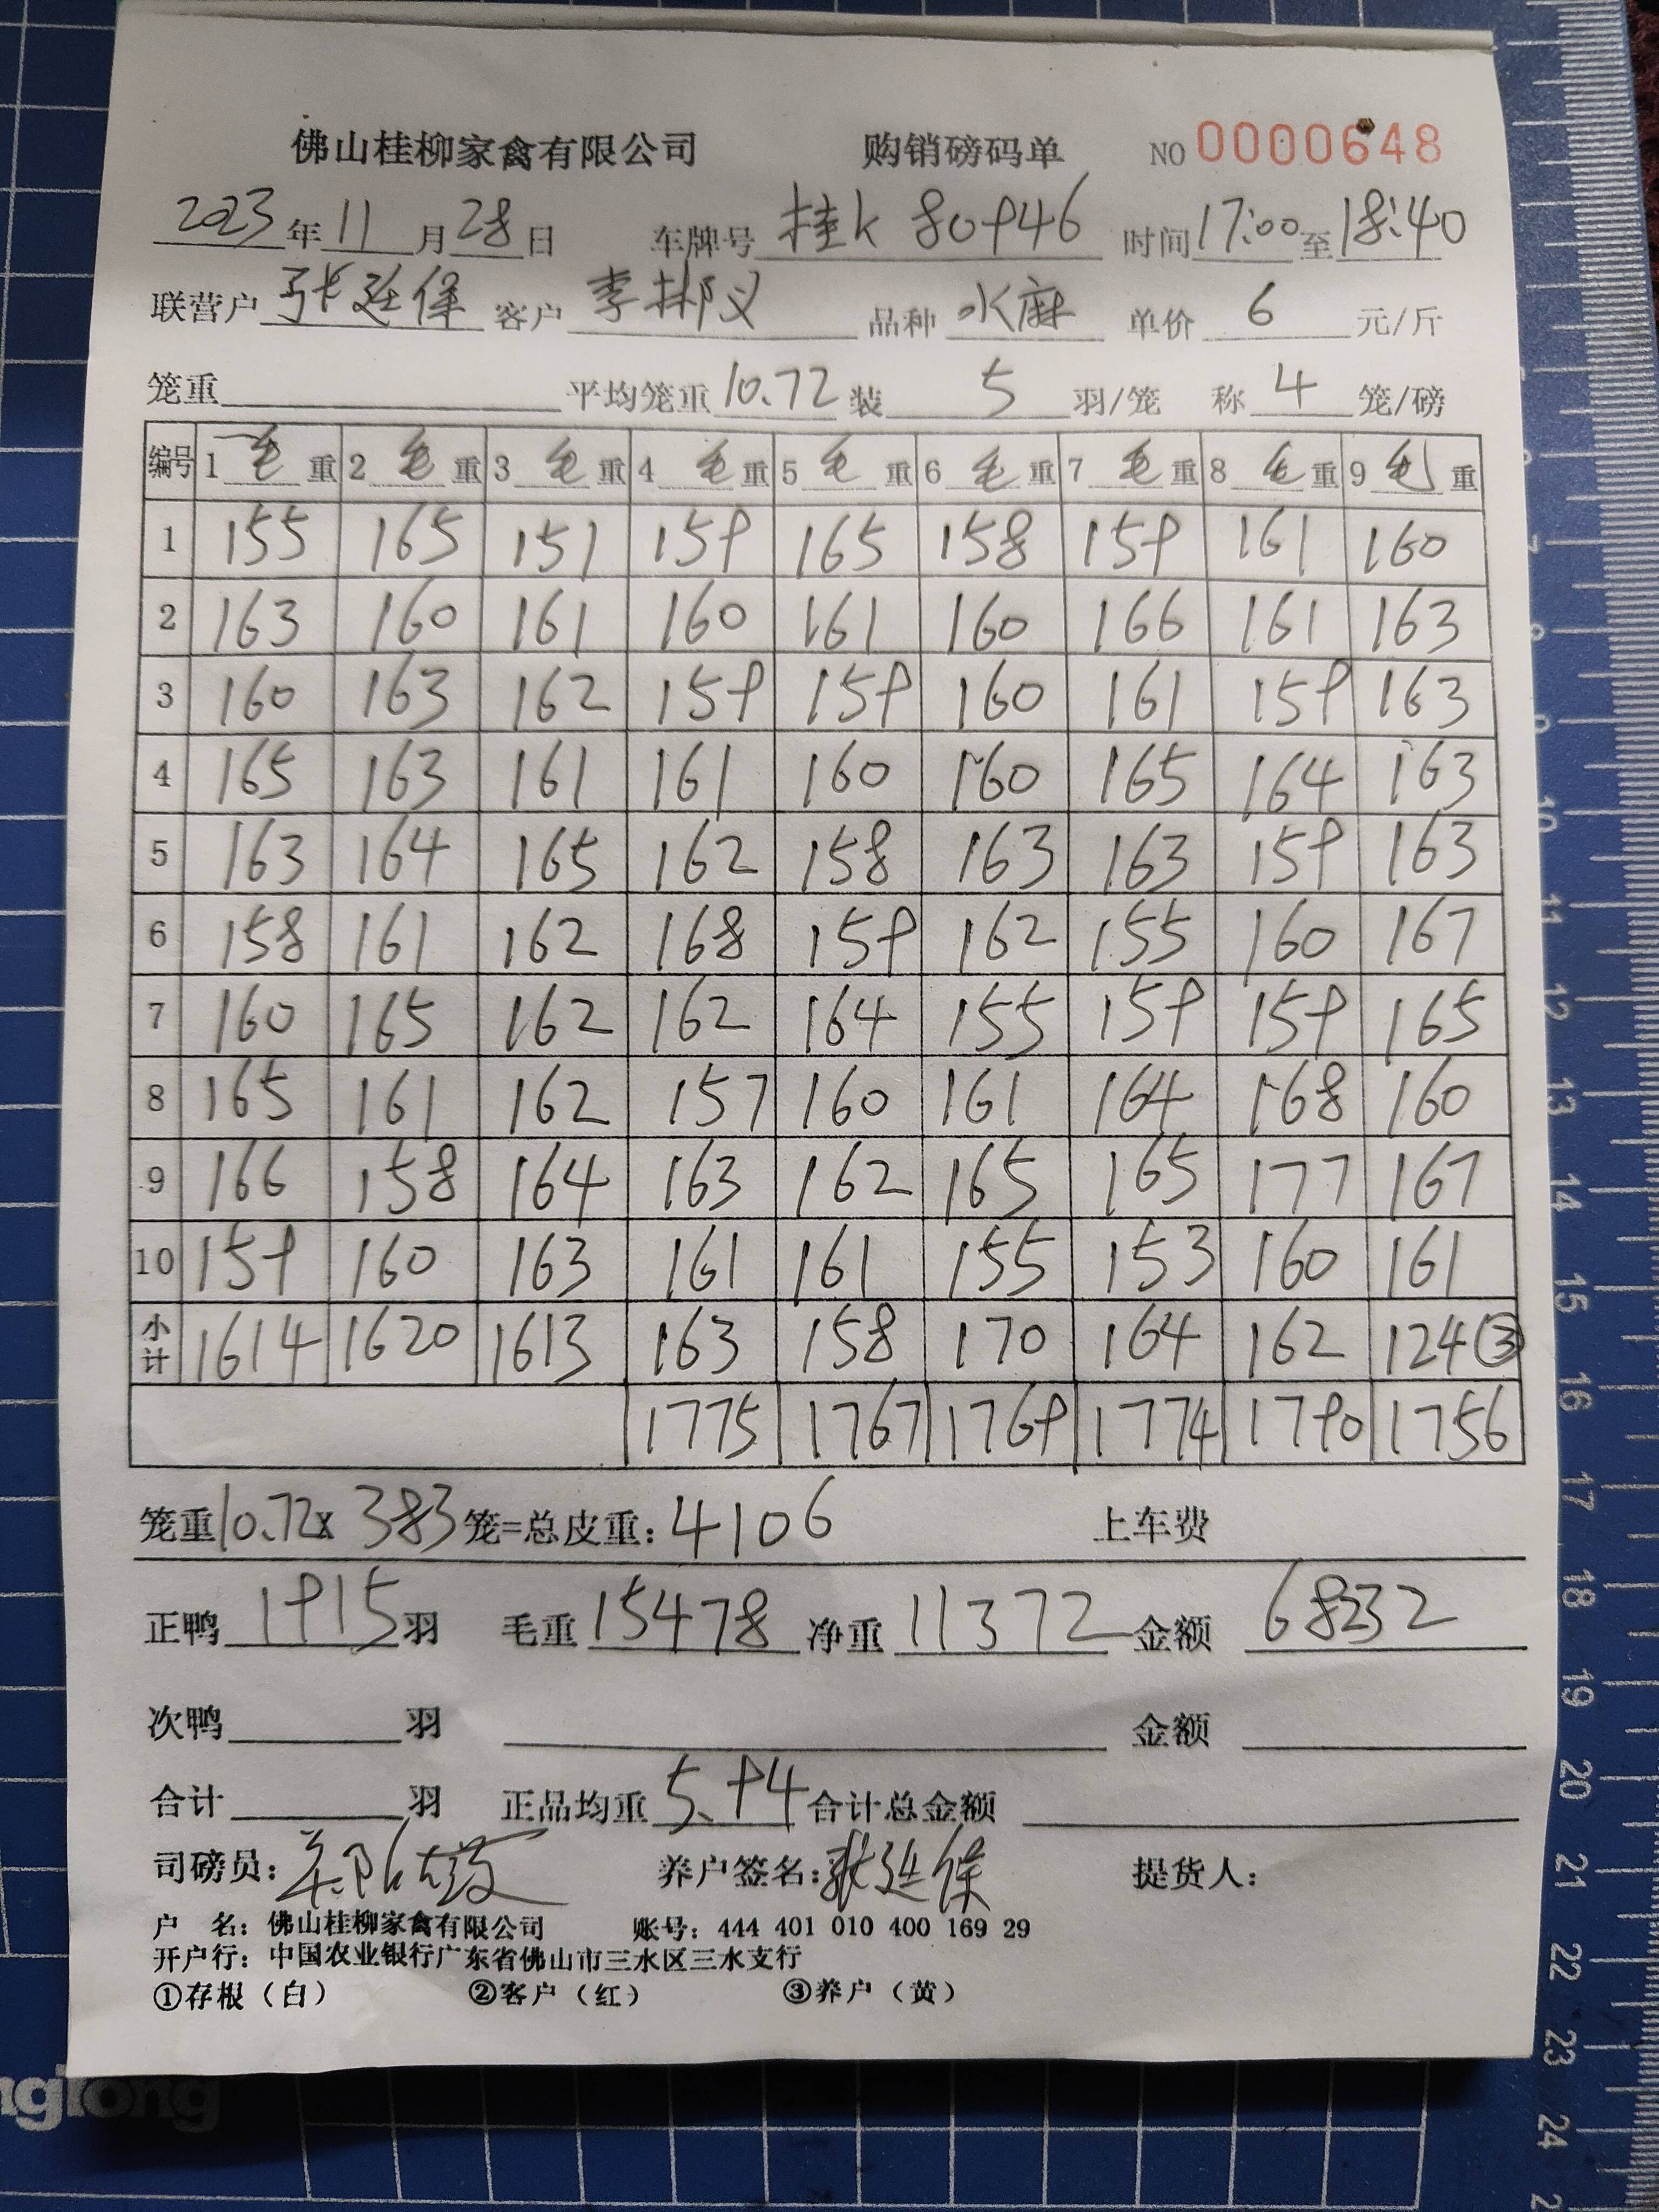 佛山桂柳家禽有限公司 购销磅码单 NO 0000648
2023年11月28日 车牌号 桂K 80946 时间17:00至18:40
联营户 张延保 客户 李郴义 品种 水麻 单价 6 元/斤
笼重 平均笼重 10.72 装 5 羽/笼 称 4 笼/磅
编号 1 毛 重 2 毛 重 3 毛 重 4 毛 重 5 毛 重 6 毛 重 7 毛 重 8 毛 重 9 毛 重
1 155 165 151 159 165 158 159 161 160
2 163 160 161 160 161 160 166 161 163
3 160 163 162 159 159 160 161 159 163
4 165 163 161 161 160 160 165 164 163
5 163 164 165 162 158 163 163 159 163
6 158 161 162 168 159 162 155 160 167
7 160 165 162 162 164 155 159 159 165
8 165 161 162 157 160 161 164 168 160
9 166 158 164 163 162 165 165 177 167
10 159 160 163 161 161 155 153 160 161
小计 1614 1620 1613 163 158 170 164 162 124③
1775 1767 1769 1774 1790 1756
笼重10.72x 383笼=总皮重: 4106 上车费
正鸭 1915 羽 毛重 15478 净重 11372 金额 68232
次鸭 羽 金额
合计 羽 正品均重 5.94 合计总金额
司磅员: 养户签名: 张延保 提货人:
户 名: 佛山桂柳家禽有限公司 账号: 444 401 010 400 169 29
开户行: 中国农业银行广东省佛山市三水区三水支行
①存根（白） ②客户（红） ③养户（黄）